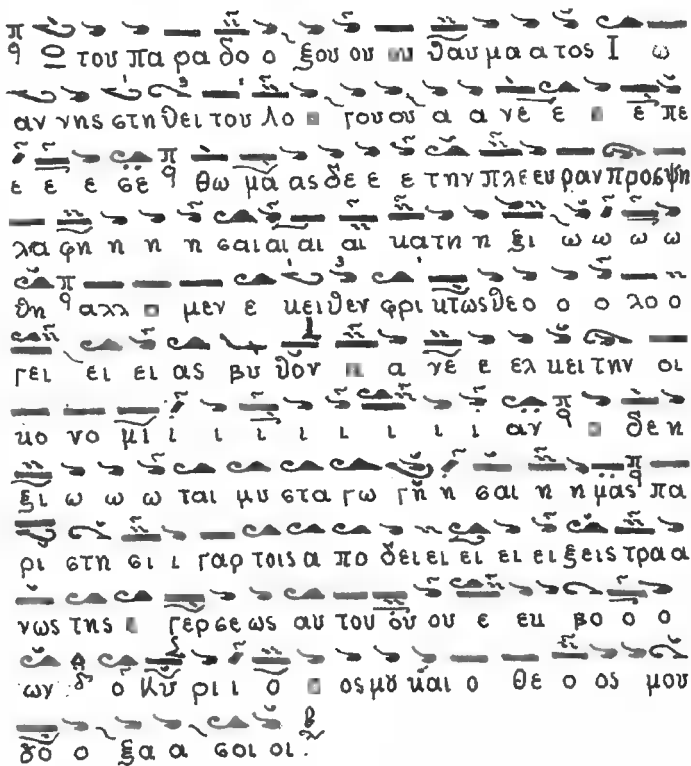 Ω του πα ρα δο ο ξου ου ου θαυ μα α τος Ι ω
αν νης στη θει του λο γου ου α α νε ε ε πε
ε ε ε σε θω μα ας δε ε ε την πλε ευ ραν προς ψη
λα φη η η η σαι αι αι αι κα τη η ξι ω ω ω ω
θη αλλ μεν ε κει θεν φρι κτως θε ο ο ο λο ο
γει ει ει ας βυ θον α νε ε ελ κει την οι
κο νο μι ι ι ι ι ι ι ι ι αν δε η
ξι ω ω ω ται μυ στα γω γη η σαι η η μας πα
ρι στη σι ι γαρ τοις α πο δει ει ει ει ει ξεις τρα α
νως της γερ σε ως αυ του ου ου ε εκ βο ο ο
ων ο Κυ ρι ι ο ος μȣ και ο θε ο ος μου
δο ο ξα α σοι οι.